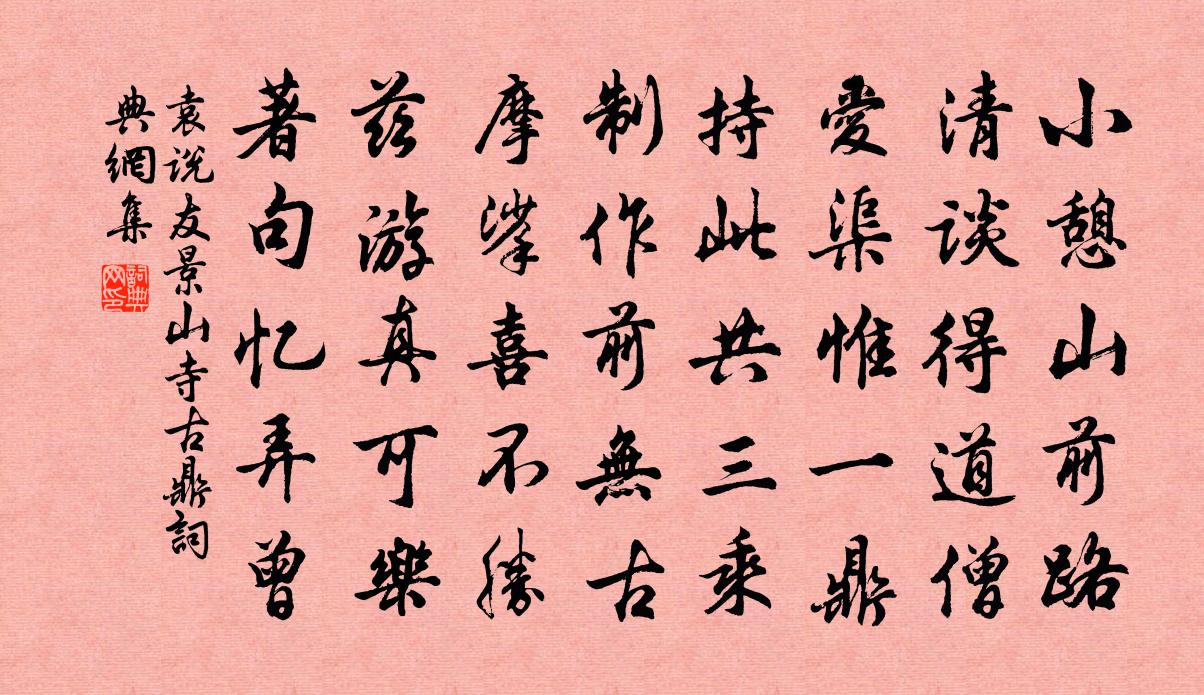 小憩山前路
清談得道僧
愛渠惟一鼎
持此共三乘
制作前無古
摩挲喜不勝
茲游真可樂
著句忆弄曾
袁说友景山寺古鼎詞
典網集
詞典
网印